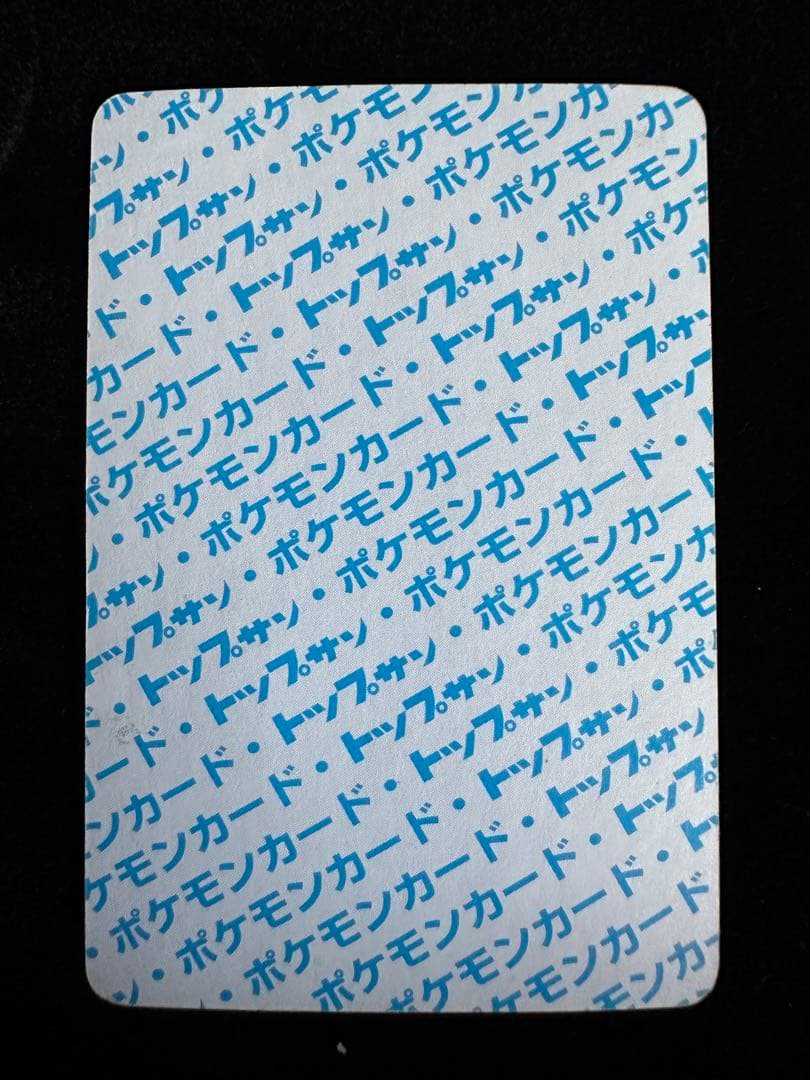 ン・ポケ
プサン・ポケモ
トップサン・ポケモン
ド・トップサン・ポケモンカ
カード・トップサン・ポケモンカー
モンカード・トップサン・ポケモンカー
ポケモンカード・トップサン・ポケモン
・ポケモンカード・トップサン・ポケ
サン・ポケモンカード・トップサン・
トップサン・ポケモンカード・トップサン
ド・トップサン・ポケモンカード・トッ
カード・トップサン・ポケモンカード・
ンカード・トップサン・ポケモンカー
ケモンカード・トップサン・ポケモンカ
・ポケモンカード・トップサン・ポケモ
ン・ポケモンカード・トップサン・ポ
・ポケモンカード・トップサン
ポケモンカード・ト
ケモンカード
ポケモンカ